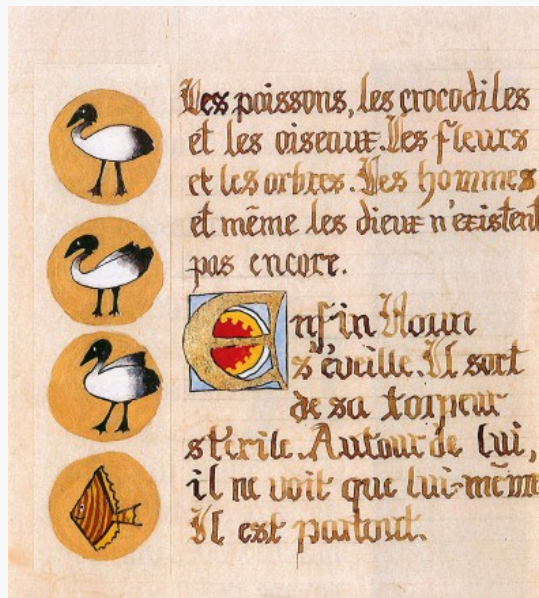 Les poissons, les crocodiles
et les oiseaux. Les fleurs
et les arbres. Les hommes
et même les dieux n'existent
pas encore.
Enfin Noun
s'éveille. Il sort
de sa torpeur
stérile. Autour de lui,
il ne voit que lui-même
Il est partout.